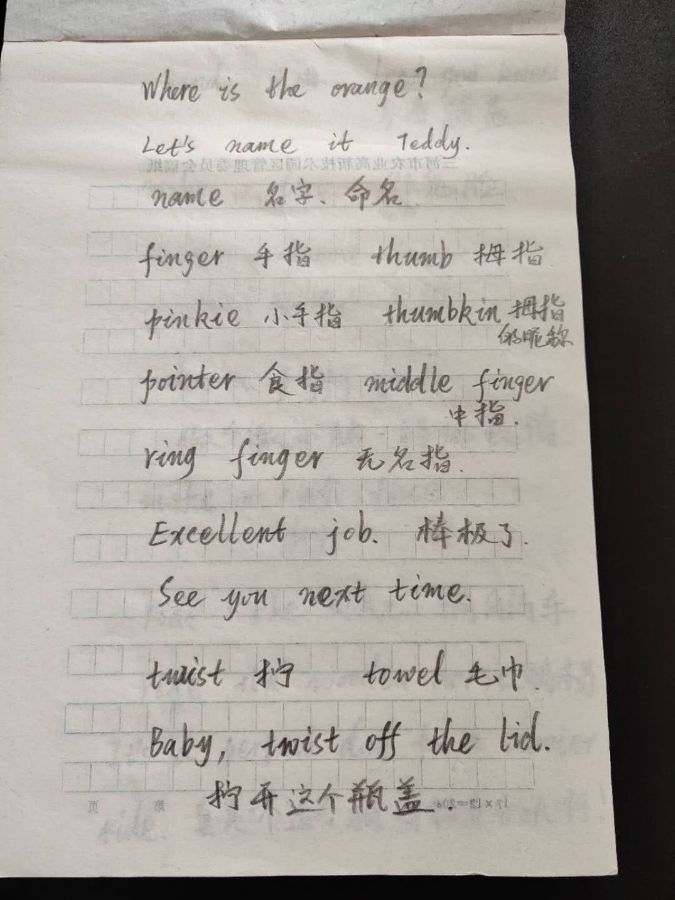 Where is the orange?
Let's name it Teddy.
name 名字、命名
finger 手指 thumb 拇指
pinkie 小手指 thumbkin 拇指
的昵称
pointer 食指 middle finger
中指.
ring finger 无名指.
Excellent job. 棒极了.
See you next time.
twist 拧 towel 毛巾.
Baby, twist off the lid.
拧开这个瓶盖.